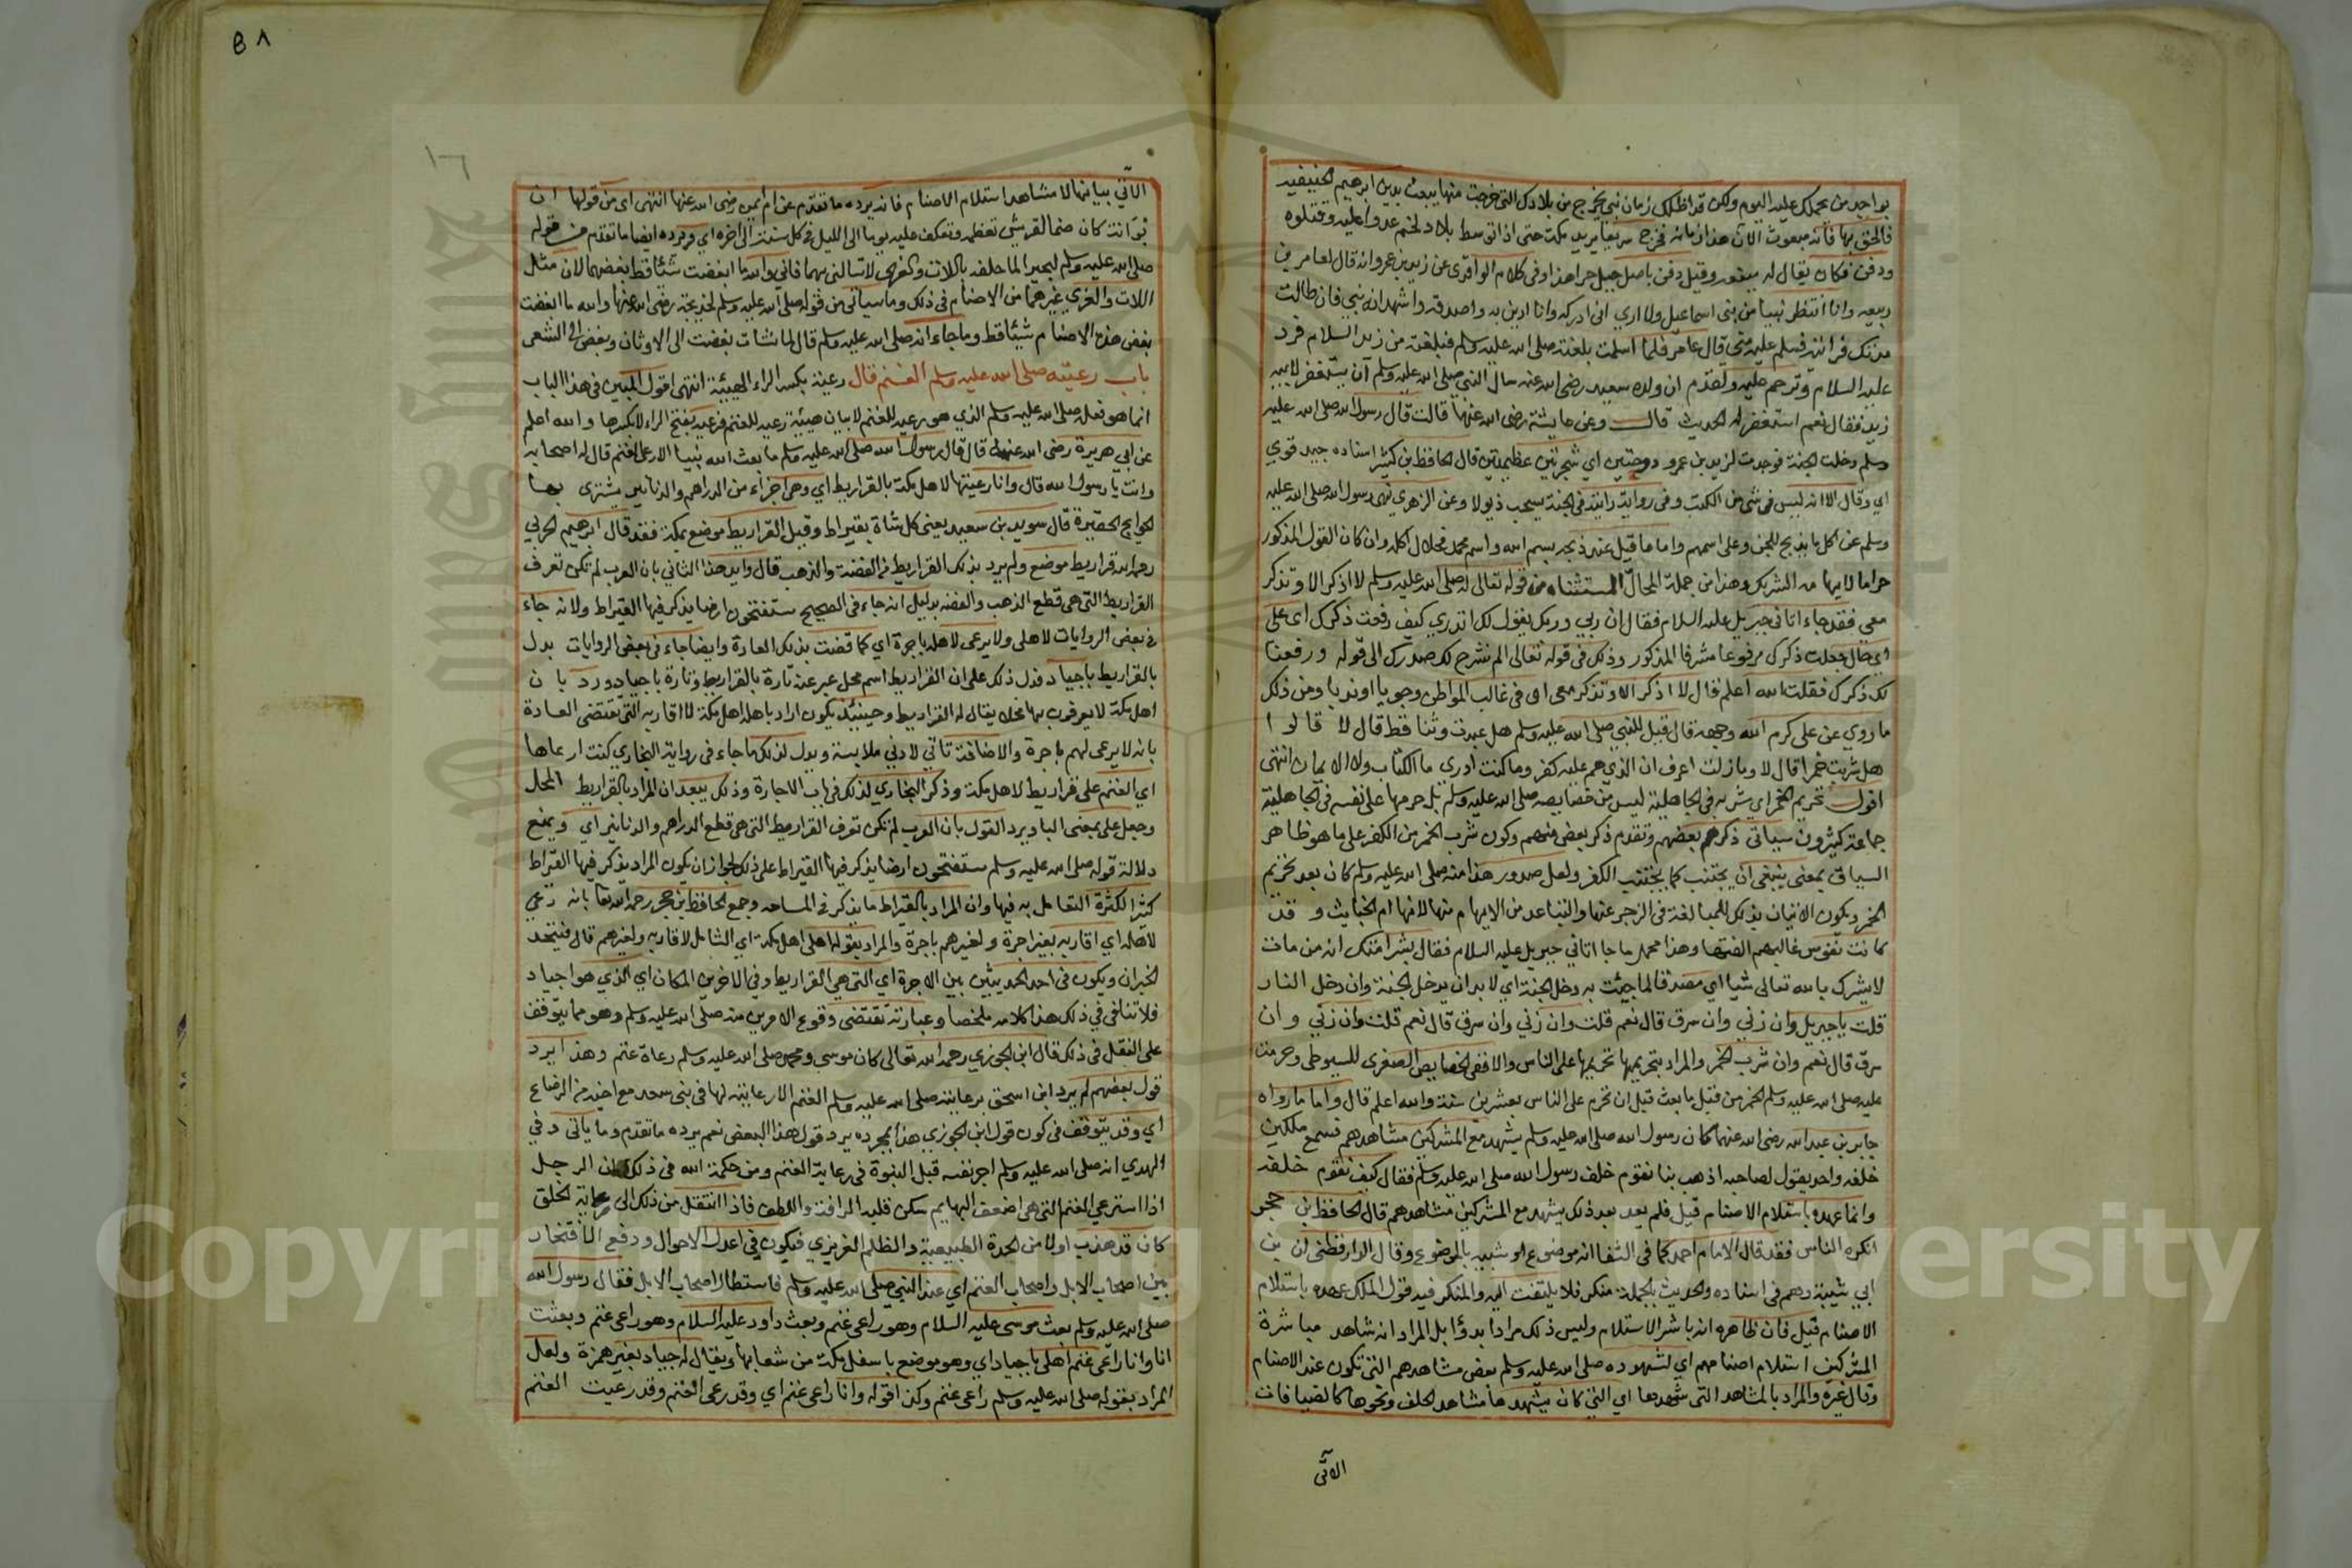 بواجد من يحملك عليه اليوم ولكن قد اظلك زمان نبي يخرج من بلادك التي خرجت منها يبعث بدين ابرهيم الحنيفيه
فالحق بها فانه مبعوث الان هذا زمانه فخرج سريعا يريد مكة حتى اذا توسط بلاد لخم عدوا عليه وقتلوه
ودفن فكان يقال له وقيل دفن باصل جبل حرا هذا وفى كلام الواقدى عن زيد بن عمرو انه قال لعامر بن
ربيعه وانا انتظر نبيا من بنى اسماعيل ولا اري انى ادركه وانا ادين به واصدقه واشهد انه نبي فان طالت
بك مدة فرايته فسلم عليه منى قال عامر فلما اسلمت بلغته صلى الله عليه وسلم من زيد السلام فرد
عليه السلام وترحم عليه وتقدم ان ولده سعيد رضى الله عنه سال النبي صلى الله عليه وسلم ان يستغفر لابيه
زيد فقال نعم استغفر له الحديث قالـــ وعن عايشة رضى الله عنها قالت قال رسول الله صلى الله عليه
وسلم دخلت الجنة فوجدت لزيد بن عمرو دوحتين اي شجرتين عظيمتين قال الحافظ بن كثير اسناده جيد قوي
اي وقال الا انه ليس فى شى من الكتب وفى رواية رايته فى الجنة يسحب ذيولا وعن الزهري نهى رسول الله صلى الله عليه
وسلم عن اكل ما يذبح للجن وعلى اسمهم واما ما قيل عند ذبحه بسم الله واسم محمد فحلال اكله وان كان القول المذكور
حراما لايهامه التشريك وهذا من جملة المحال المستثناه من قوله تعالى له صلى الله عليه وسلم لا اذكر الا وتذكر
معى فقد جاء اتانى جبريل عليه السلام فقال ان ربي وربك يقول لك اتدري كيف رفعت ذكرك اى على
اى حال جعلت ذكرك مرفوعا مشرفا المذكور وذلك فى قوله تعالى الم نشرح لك صدرك الى قوله ورفعنا
لك ذكرك فقلت الله اعلم قال لا اذكر الا وتذكر معى اى فى غالب المواطن وجوبا او ندبا ومن ذلك
ما روي عن على كرم الله وجهه قال قيل للنبي صلى الله عليه وسلم هل عبدت وثنا قط قال لا قالوا
هل شربت خمرا قال لا وما زلت اعرف ان الذي هم عليه كفر وما كنت ادري ما الكتاب ولا الايمان انتهى
اقول تحريم الخمر اي شربه فى الجاهلية ليس من خصايصه صلى الله عليه وسلم بل حرمها على نفسه فى الجاهلية
جماعة كثيرون سياتى ذكرهم بعضهم وتقدم ذكر بعض منهم وكون شرب الخمر من الكفر على ما هو ظاهر
السياق بمعنى ينبغى ان يجتنب كما يجتنب الكفر ولعل صدور هذا منه صلى الله عليه وسلم كان بعد تحريم
الخمر ويكون الاتيان بذلك للمبالغة فى الزجر عنها والتباعد من الايهام منها لانها ام الخبايث وقد
كانت نفوس غالبهم الفتها وهذا محمل ما جا اتاني جبريل عليه السلام فقال بشر امتك انه من مات
لا يشرك بالله تعالى شيا اي مصدقا لما جيئت به دخل الجنة اي لا بد ان يدخل الجنة وان دخل النار
قلت يا جبريل وان زني وان سرق قال نعم قلت وان زني وان سرق قال نعم قلت وان زني وان
سرق قال نعم وان شرب الخمر والمراد بتحريمها تحريمها على الناس والا ففى الخصايص الصغرى للسيوطى وحرمت
عليه صلى الله عليه وسلم الخمر من قبل ما بعث قبل ان تحرم على الناس بعشرين سنة والله اعلم قال واما ما رواه
جابر بن عبد الله رضى الله عنهما كان رسول الله صلى الله عليه وسلم يشهد مع المشركين مشاهدهم فسمع ملكين
خلفه واحد يقول لصاحبه اذهب بنا نقوم خلف رسول الله صلى الله عليه وسلم فقال كيف نقوم خلفه
وانما عهده باستلام الاصنام قبل فلم يعد بعد ذلك يشهد مع المشركين مشاهدهم قال الحافظ بن حجر
انكره الناس فقد قال الامام احمد كما فى الشفا انه موضوع او شبيه بالموضوع وقال الدارقطنى ان بن
ابى شيبة وهم فى اسناده والحديث بالجملة منكر فلا يلتفت اليه والمنكر فيه قول الملك عهده باستلام
الاصنام قبل فان ظاهره انه باشر الاستلام وليس ذلك مرادا بل المراد انه شاهد مباشرة
المشركين استلام اصنامهم اي لشهوده صلى الله عليه وسلم بعض مشاهدهم التى تكون عند الاصنام
وقال غيره والمراد بالمشاهد التى شهدها اي التى كان يشهدها مشاهد الحلف ونحوها كالضيافات
الاتى
٨ 8
١٦
الآتي بيانها لا مشاهد استلام الاصنام فانه يرده ما تقدم عن ام ايمن رضى الله عنها انتهى اى من قولها ان
بوانة كان صنما لقريش تعظمه وتعكف عليه يوما الى الليل فى كل سنة الى اخره اي ويرده ايضا ما تقدم من قوله
صلى الله عليه وسلم لبحيرا لما حلفه باللات والعزى لا تسالنى بهما فاني والله ما ابغضت شيئا قط بغضهما لان مثل
اللات والعزي غيرهما من الاصنام فى ذلك وما سياتى من قوله صلى الله عليه وسلم لخديجة رضى الله عنها والله ما ابغضت
بغض هذه الاصنام شيئا قط وما جاء انه صلى الله عليه وسلم قال لما نشات بغضت الى الاوثان وبغض الى الشعر
باب رعيته صلى الله عليه وسلم الغنم قال رعية بكسر الراء الهيئة انتهى اقول المبين فى هذا الباب
انما هو فعله صلى الله عليه وسلم الذي هو رعيه للغنم لا بيان هيئة رعيه للغنم فرعيه بفتح الراء لا بكسرها والله اعلم
عن ابى هريرة رضى الله عنه قال قال رسول الله صلى الله عليه وسلم ما بعث الله نبيا الا رعى الغنم قال له اصحابه
وانت يا رسول الله قال وانا رعيتها لاهل مكة بالقراريط اي وهى اجزاء من الدراهم والدنانير يشترى بها
الحوايج الحقيرة قال سويد بن سعيد يعنى كل شاة بقيراط وقيل القراريط موضع بمكة فقد قال ابرهيم الحربى
رحمه الله قراريط موضع ولم يرد بذلك القراريط من الفضة والذهب قال وايد هذا الثاني بان العرب لم تكن تعرف
القراريط التى هى قطع الذهب والفضه بدليل انه جاء فى الصحيح ستفتحون ارضا يذكر فيها القيراط ولانه جاء
فى بعض الروايات لاهلى ولا يرعى لاهله باجرة اي كما قضت بذلك العادة وايضا جاء فى بعض الروايات بدل
بالقراريط باجياد فدل ذلك على ان القراريط اسم محل عبر عنه تارة بالقراريط وتارة باجياد ورد بان
اهل مكة لا يعرفون بها محلا يقال له القراريط وحينئذ يكون اراد باهله اهل مكة لا اقاربه التى تقتضى العادة
بانه لا يرعى لهم باجرة والاضافة تاتي لادني ملابسة ويدل لذلك ما جاء فى رواية البخاري كنت ارعاها
اي الغنم على قراريط لاهل مكة وذكر البخاري لذلك فى باب الاجارة وذلك يبعد ان المراد بالقراريط المحل
وجعل على بمعنى البا ويرد القول بان العرب لم تكن تعرف القراريط التى هى قطع الدراهم والدنانير اي ويمنع
دلالة قوله صلى الله عليه وسلم ستفتحون ارضا يذكر فيها القيراط على ذلك لجواز ان يكون المراد يذكر فيها القيراط
كثيرا لكثرة التعامل به فيها وان المراد بالقيراط ما يذكر فى المساحه وجمع الحافظ بن حجر رحمه الله تعا بانه رعي
لاهله اي اقاربه بغير اجرة ولغيرهم باجرة والمراد بقوله اهلى اهل مكة اي الشامل لاقاربه ولغيرهم قال فيتحد
الخبران ويكون فى احد الحديثين بين الاجرة اي التى هى القراريط وفي الاخر بين المكان اي الذي هو اجياد
فلا تنافى في ذلك هذا كلامه ملخصا وعبارته تقتضى وقوع الامرين منه صلى الله عليه وسلم وهو مما يتوقف
على النقل فى ذلك قال ابن الجوزي رحمه الله تعالى كان موسى ومحمد صلى الله عليه وسلم رعاة غنم وهذا يرد
قول بعضهم لم يرد ابن اسحق برعايته صلى الله عليه وسلم الغنم الا رعايته لها فى بنى سعد مع اخيه من الرضاع
اي وقد يتوقف فى كون قول ابن الجوزي هذا بمجرده يرد قول هذا البعض نعم يرده ما تقدم وما ياتى وفي
الهدي انه صلى الله عليه وسلم اجر نفسه قبل النبوة فى رعاية الغنم ومن حكمة الله فى ذلك ان الرجل
اذا استرعى الغنم التى هى اضعف البهايم سكن قلبه الرافة واللطف فاذا انتقل من ذلك الى رعاية الخلق
كان قد هذب اولا من الحدة الطبيعية والظلم الغريزي فيكون فى اعدل الاحوال ووقع الافتخار
بين اصحاب الابل واصحاب الغنم اي عند النبي صلى الله عليه وسلم فاستطال اصحاب الابل فقال رسول الله
صلى الله عليه وسلم بعث موسى عليه السلام وهو راعى غنم وبعث داود عليه السلام وهو راعى غنم وبعثت
انا وانا راعى غنم اهلى باجياد اي وهو موضع باسفل مكة من شعابها ويقال له جياد بغير همزة ولعل
المراد بقوله صلى الله عليه وسلم راعى غنم وكذا قوله وانا راعى غنم اي وقد رعى الغنم وقد رعيت الغنم